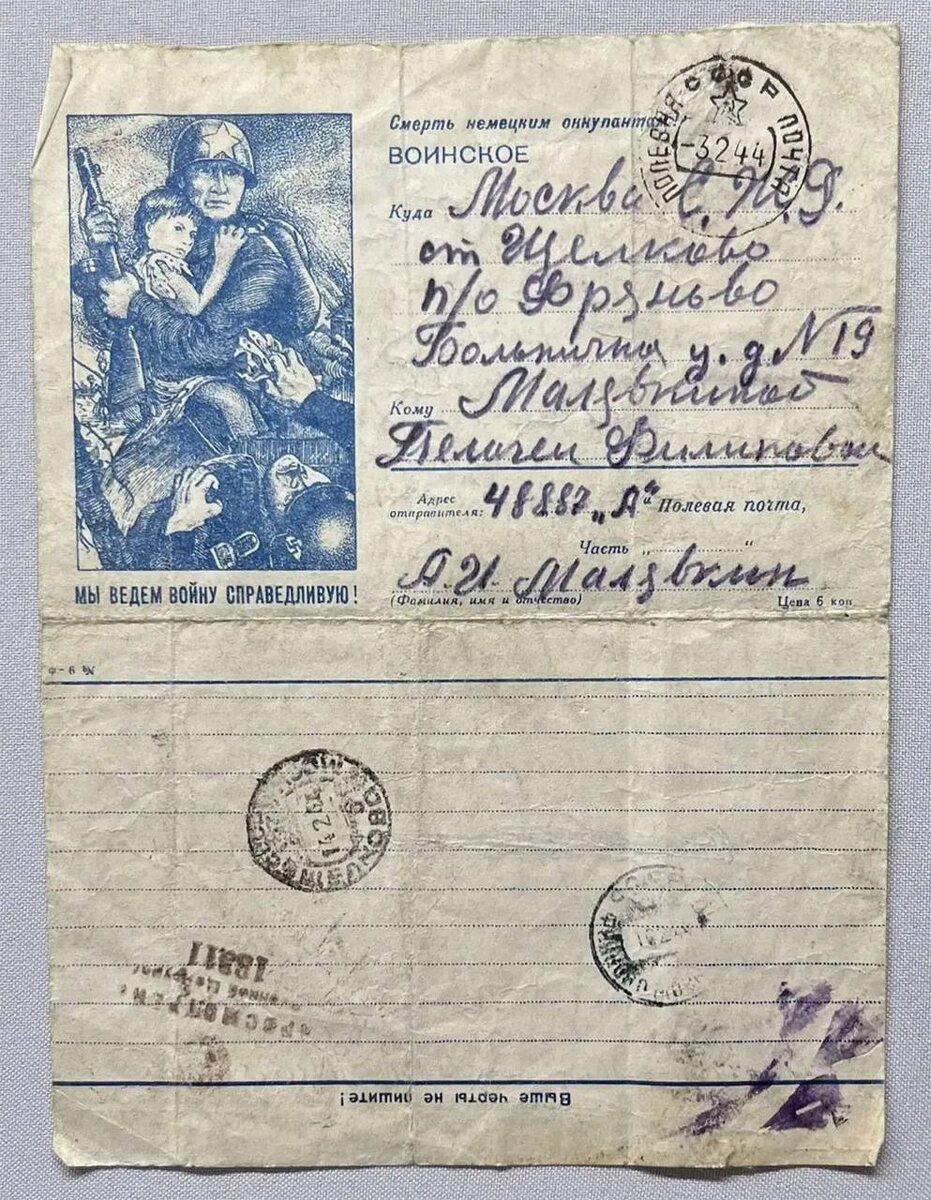 Смерть немецким оккупантам
ВОИНСКОЕ
СССР
ПОЛЕВАЯ ПОЧТА
-3 2 44
Куда Москва С. Ж. Д.
ст Щелково
п/о Фряньво
Больнична у. д N 19
Кому Малявкиной
Пелагеи Филиповой
Адрес отправителя: 48887 „А“ Полевая почта,
Часть „ “
А. И. Малявкин
(Фамилия, имя и отчество) Цена 6 коп
МЫ ВЕДЕМ ВОЙНУ СПРАВЕДЛИВУЮ!
№ 9-Ф
14 2
13811
Выше черты не пишите!